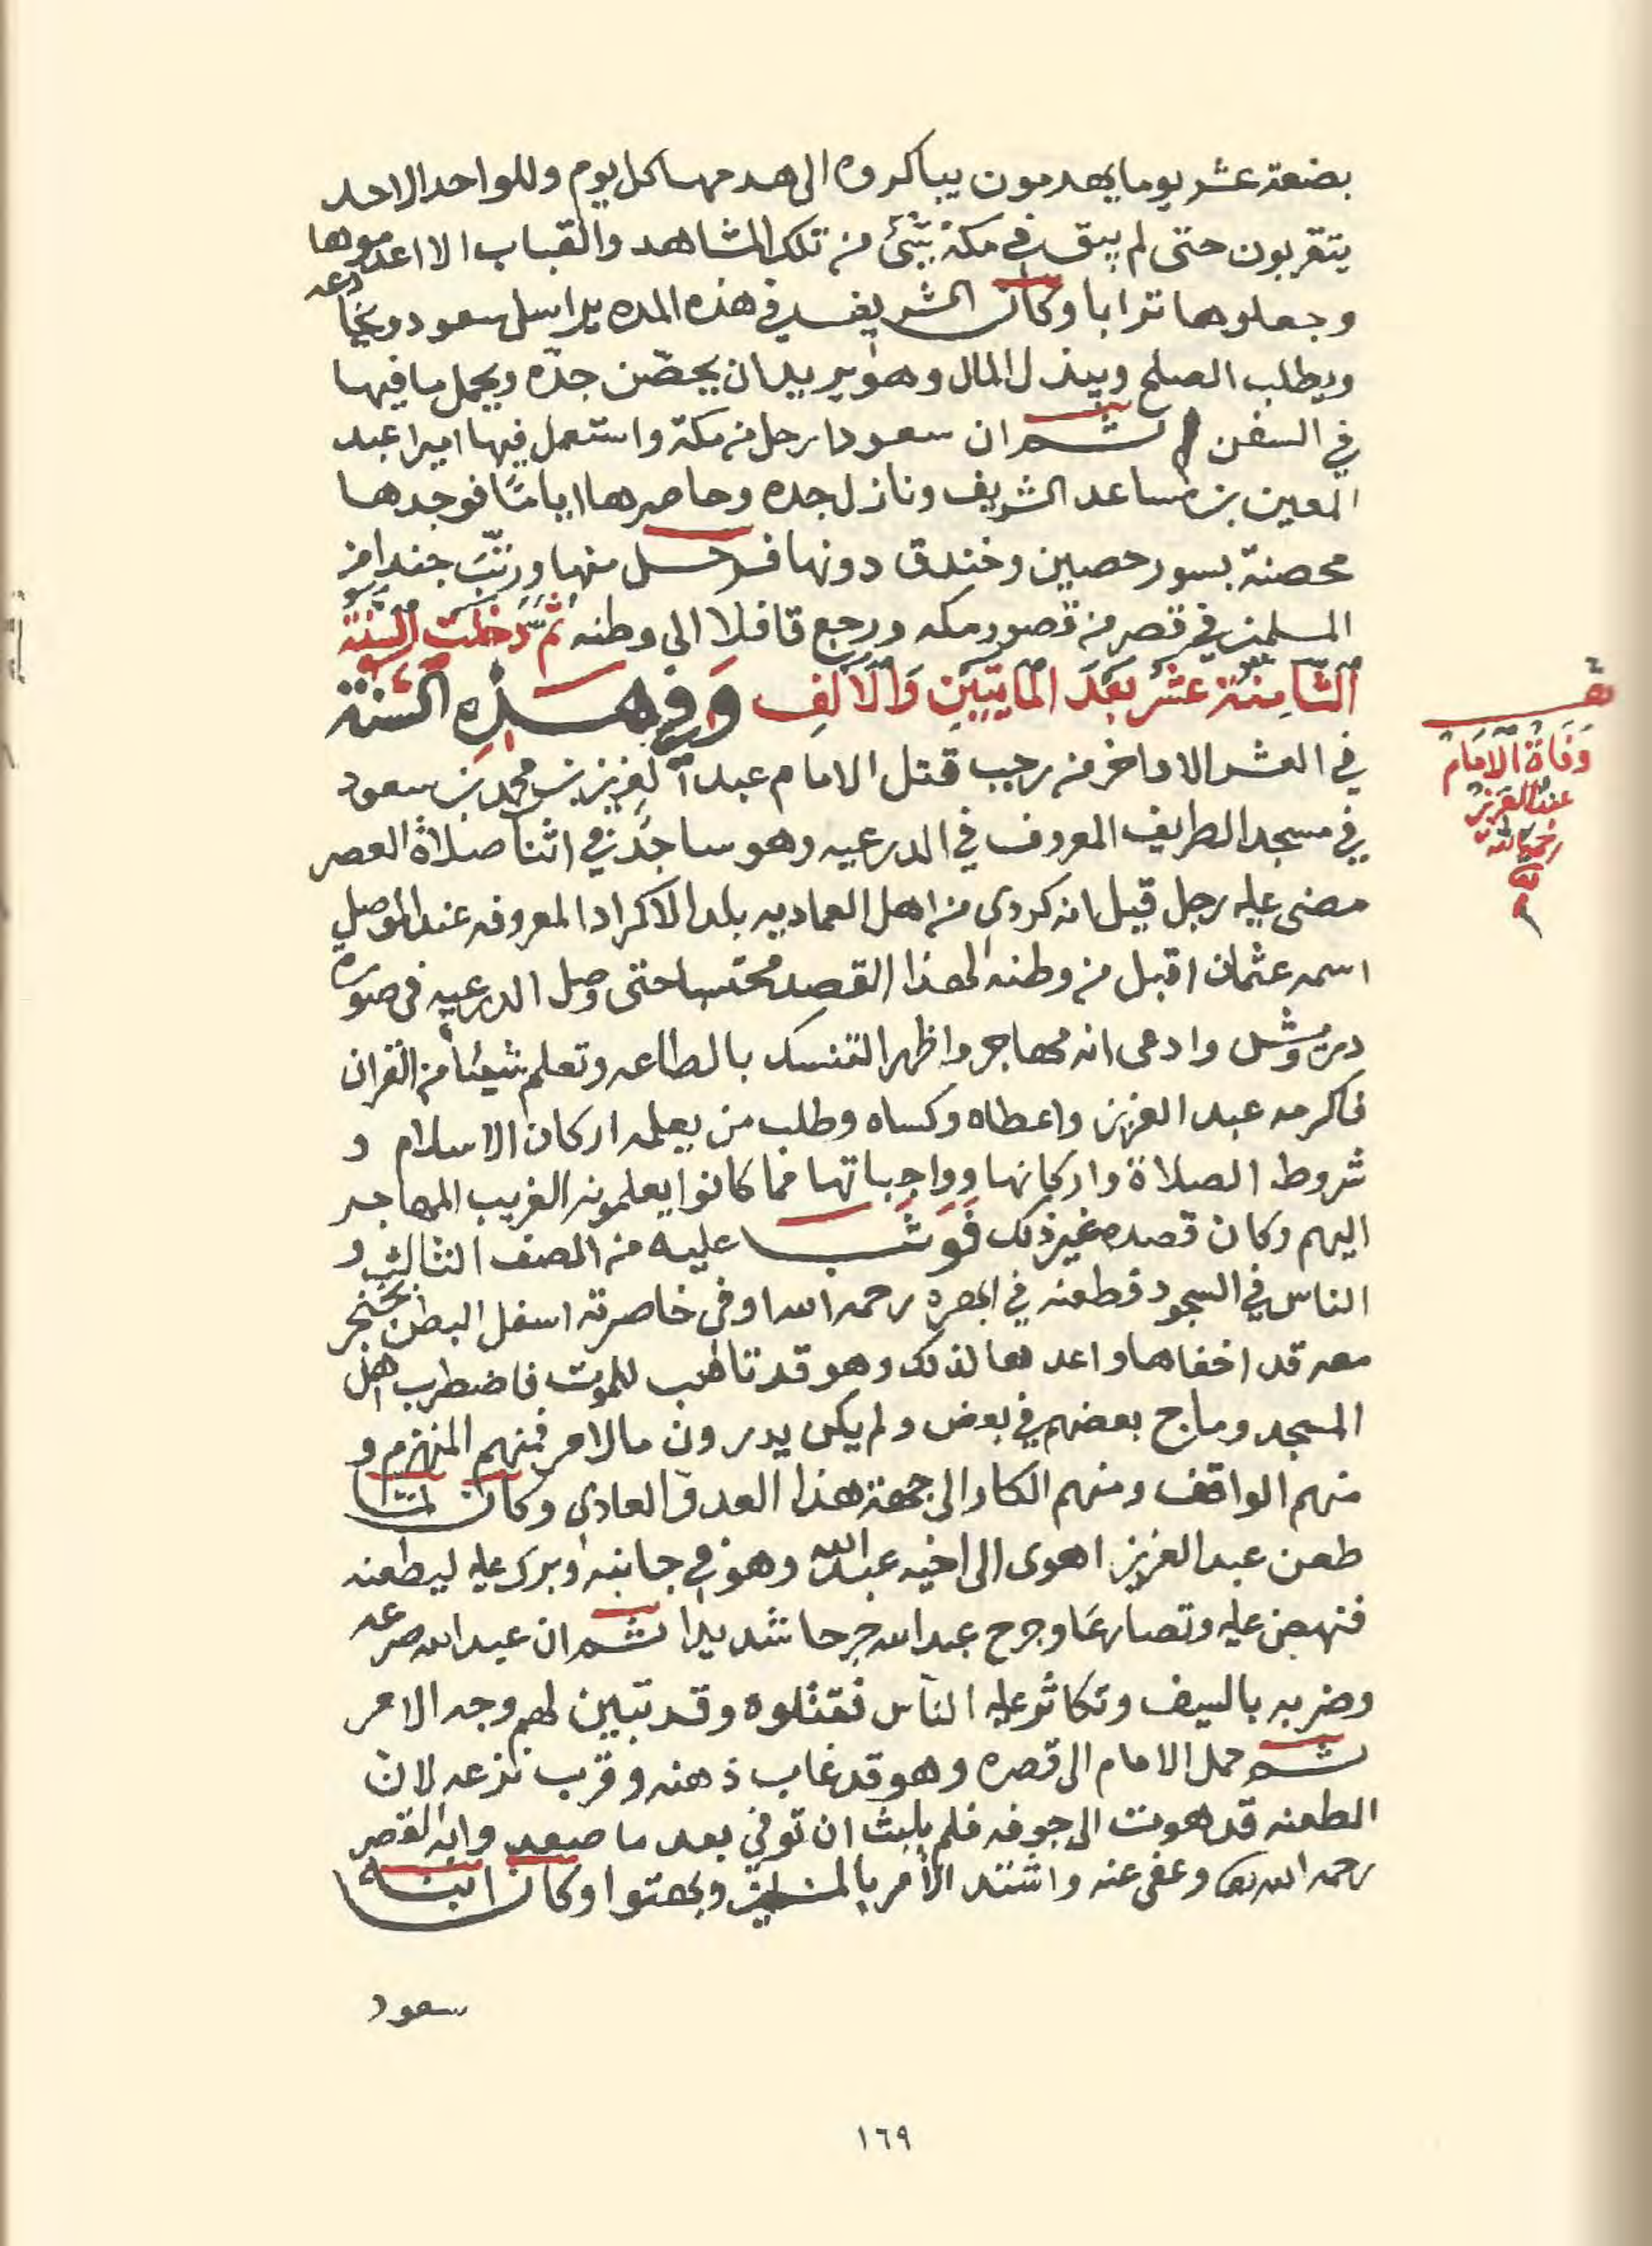 بضعة عشر يوما يهدمون يباكروه الى هدمها كل يوم وللواحد الاحد
يتقربون حتى لم يبق في مكة شئ من تلك المشاهد والقباب الا اعدموها
وجعلوها ترابا وكان الشريف في هذه المده يراسل سعود ويخادعه
ويطلب الصلح ويبذل المال وهو يريد ان يحصّن جدّه ويحمل ما فيها
في السفن ثم ان سعودا رحل من مكة واستعمل فيها اميرا عبد
المعين بن مساعد الشريف ونازل جده وحاصرها اياما فوجدها
محصنة بسور حصين وخندق دونها فرحل منها ورتّب جندا من
المسلمين في قصر من قصور مكه ورجع قافلا الى وطنه ثم دخلت السنة
الثامنة عشر بعد المايتين والالف وفي هذه السنة
في العشر الاواخر من رجب قتل الامام عبد العزيز بن محمد بن سعود
في مسجد الطريف المعروف في الدرعيه وهو ساجد في اثنا صلاة العصر
مضى عليه رجل قيل انه كردي من اهل العماديه بلد الاكراد المعروفه عند الموصل
اسمه عثمان اقبل من وطنه لهذا القصد محتسبا حتى وصل الدرعيه في صورة
درويش وادعى انه مهاجر واظهر التنسك بالطاعه وتعلم شيئا من القران
فاكرمه عبد العزيز واعطاه وكساه وطلب من يعلمه اركان الاسلام و
شروط الصلاة واركانها وواجباتها مما كانوا يعلمونه الغريب المهاجر
اليهم وكان قصده غير ذلك فوثب عليه من الصف الثالث و
الناس في السجود فطعنه في ابهره رحمه الله او في خاصرته اسفل البطن بخنجر
معه قد اخفاها واعدها لذلك وهو قد تاهب للموت فاضطرب اهل
المسجد وماج بعضهم في بعض ولم يكن يدرون مالامر فمنهم المنهزم و
منهم الواقف ومنهم الكار الى جهة هذا العدو العادي وكان لما
طعن عبد العزيز اهوى الى اخيه عبد الله وهو في جانبه وبرك عليه ليطعنه
فنهض عليه وتصارعا وجرح عبد الله جرحا شديدا ثم ان عبد الله صرعه
وضربه بالسيف وتكاثر عليه الناس فقتلوه وقد تبين لهم وجه الامر
ثم حمل الامام الى قصره وهو قد غاب ذهنه وقرب نزعه لان
الطعنه قد هوت الى جوفه فلم يلبث ان توفي بعد ما صعد وابه القصر
رحمه الله وعفى عنه واشتد الأمر بالمسلمين وبهتوا وكان ابنه
سعود
وفاة الامام
عبد العزيز
رحمه الله
١٦٩